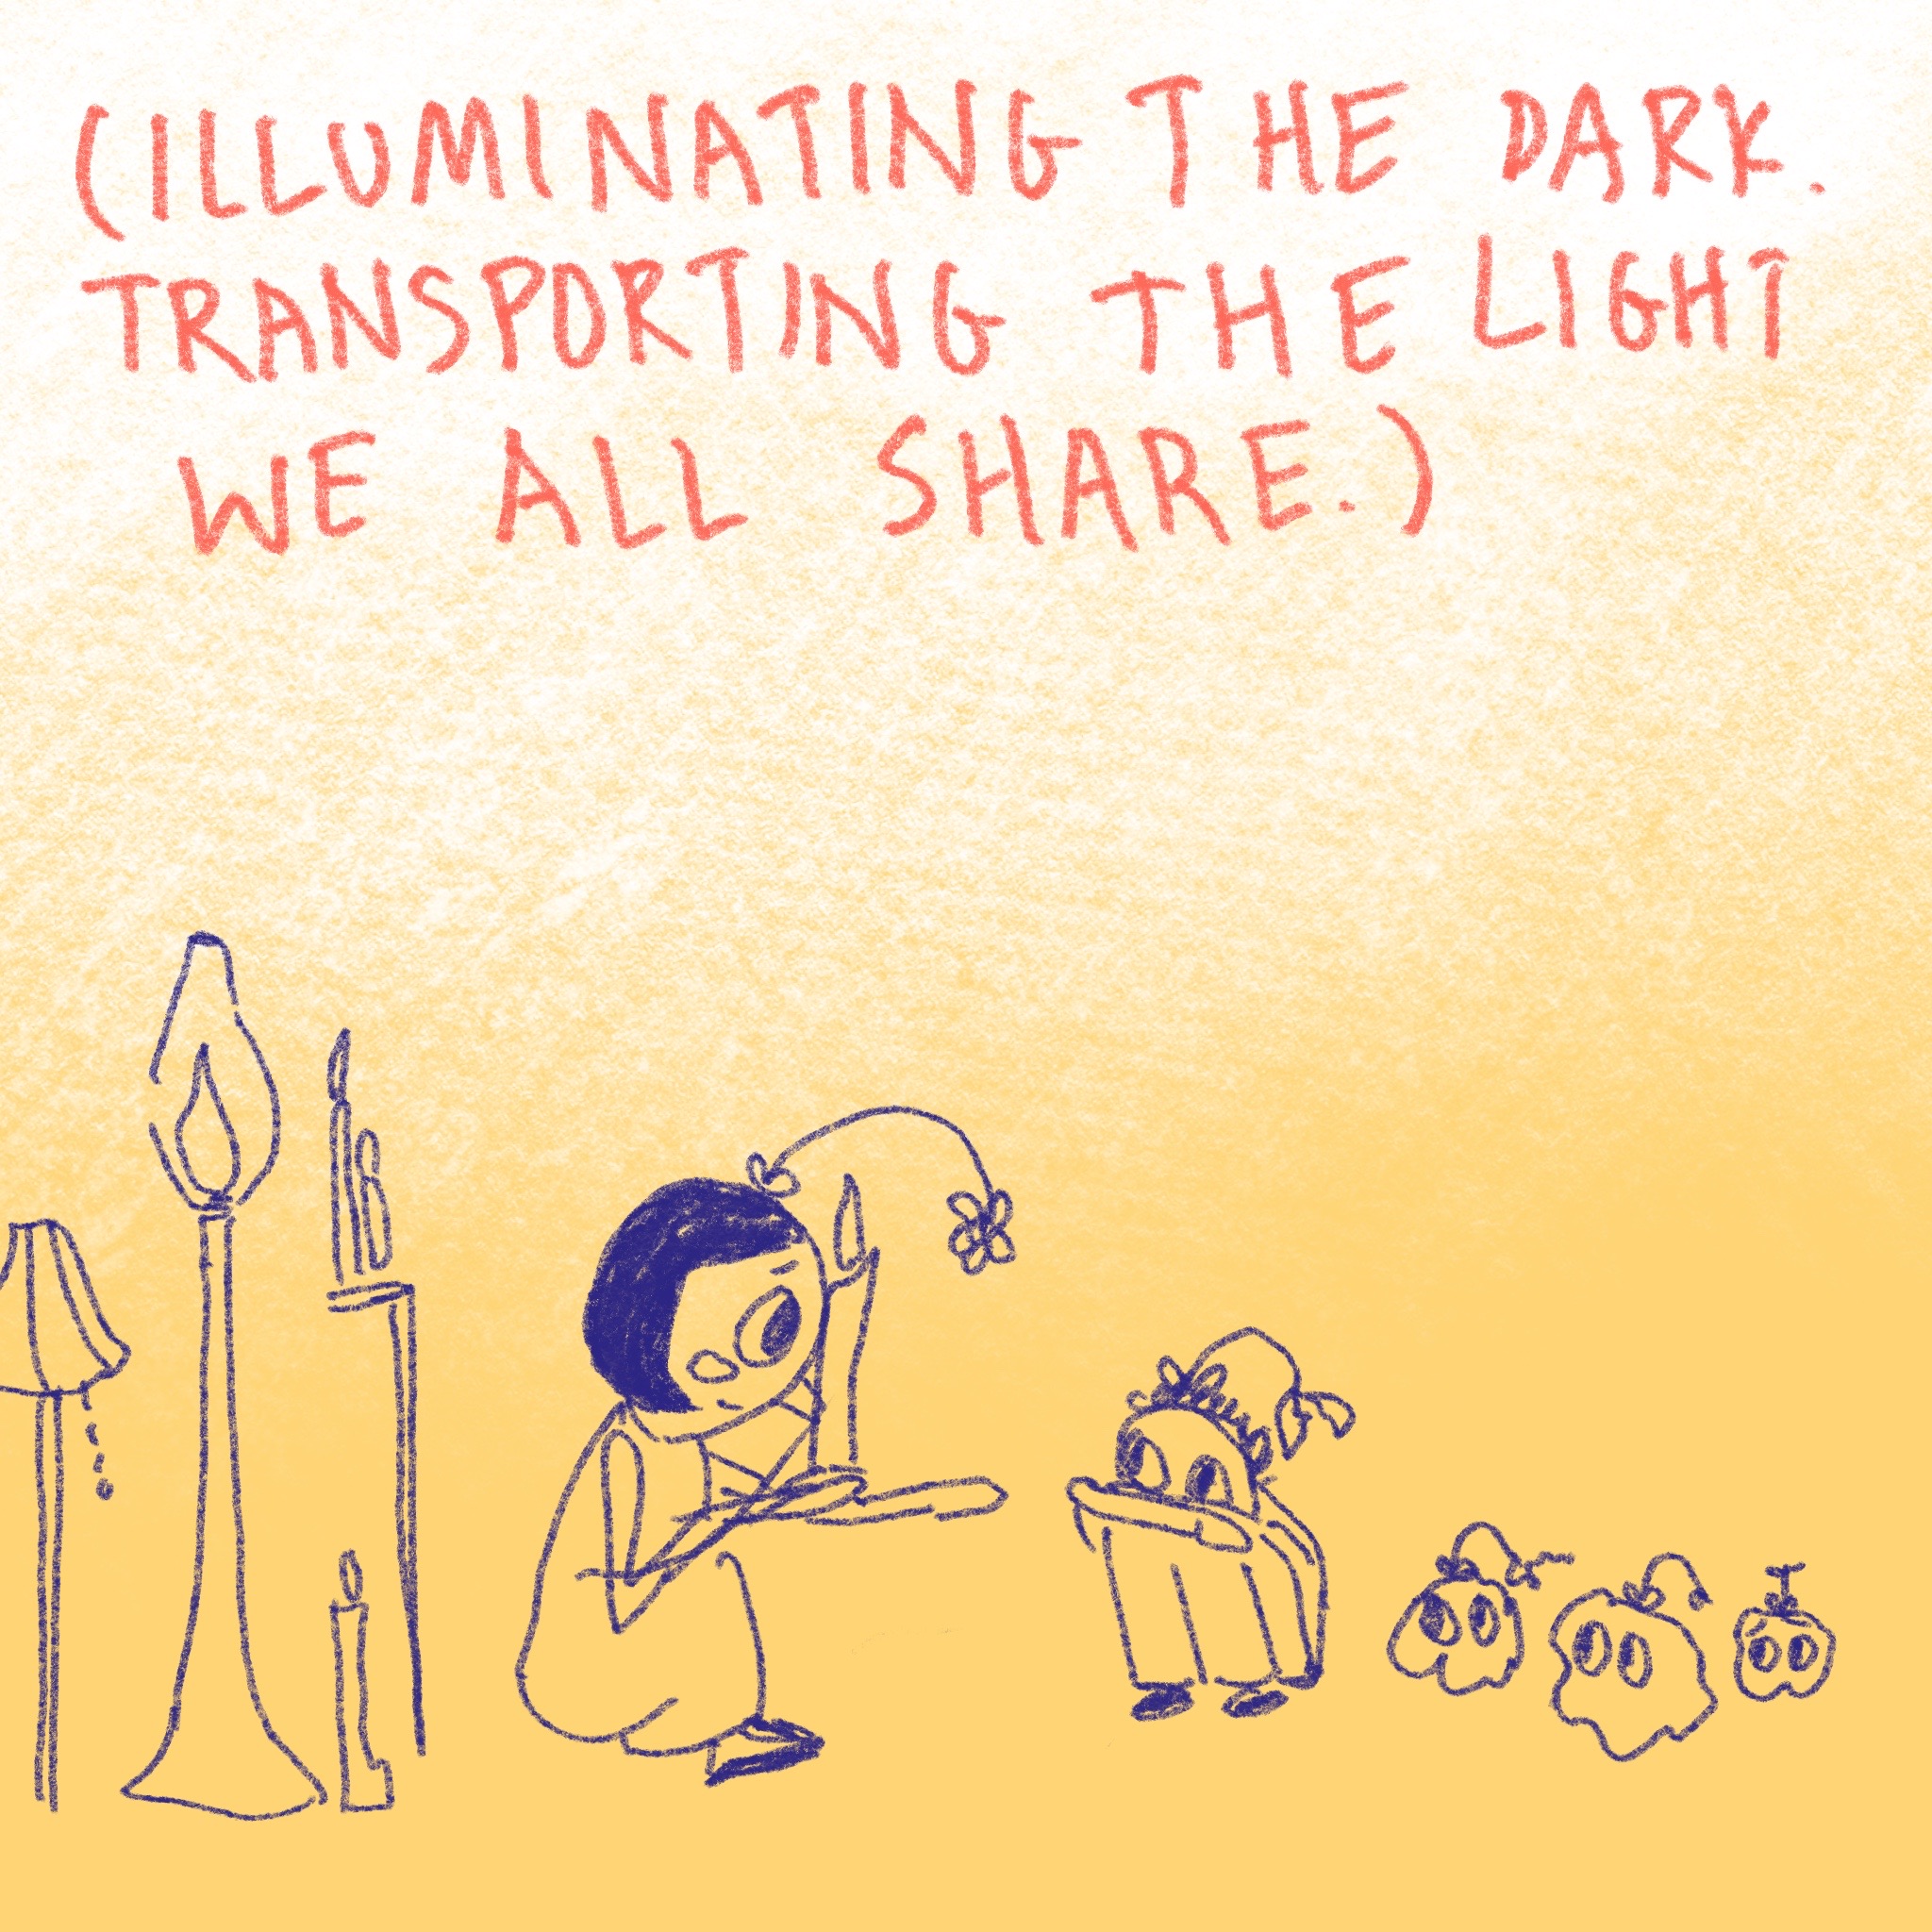 (ILLUMINATING THE DARK.
TRANSPORTING THE LIGHT
WE ALL SHARE.)